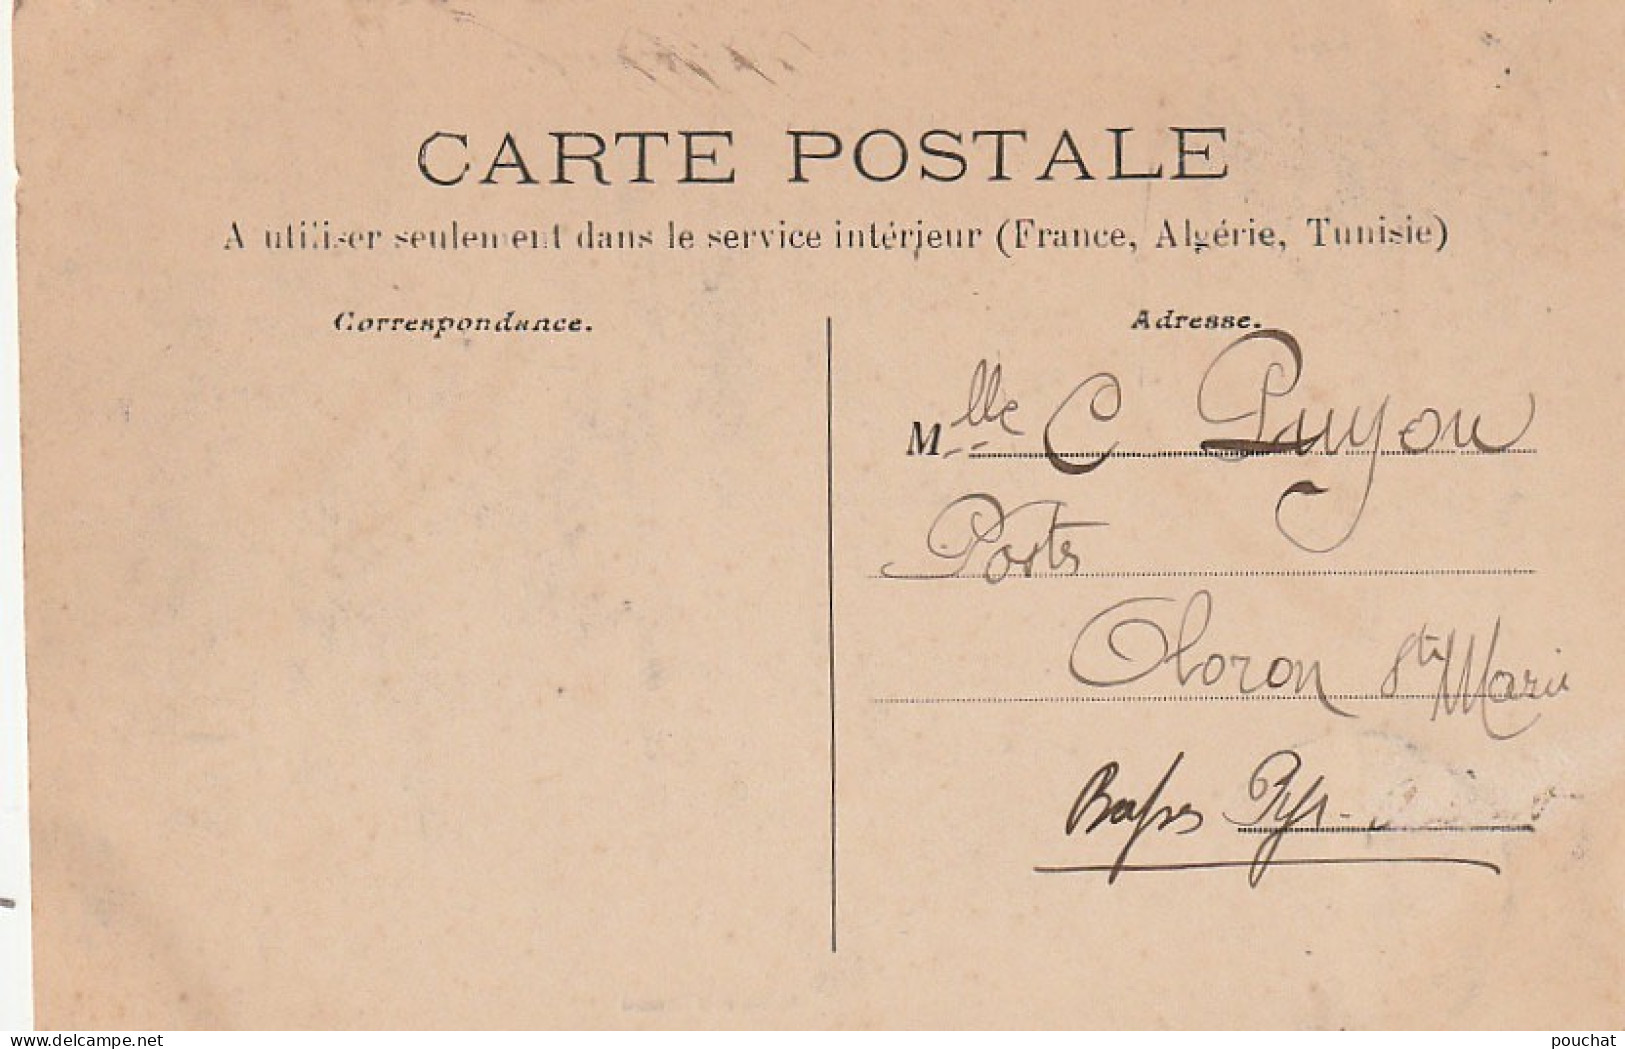 CARTE POSTALE
A utiliser seulement dans le service intérieur (France, Algérie, Tunisie)
Correspondance.
Adresse.
Mlle C Puyou
Postes
Oloron Ste Marie
Basses Pyr-
delcampe.net
pouchat